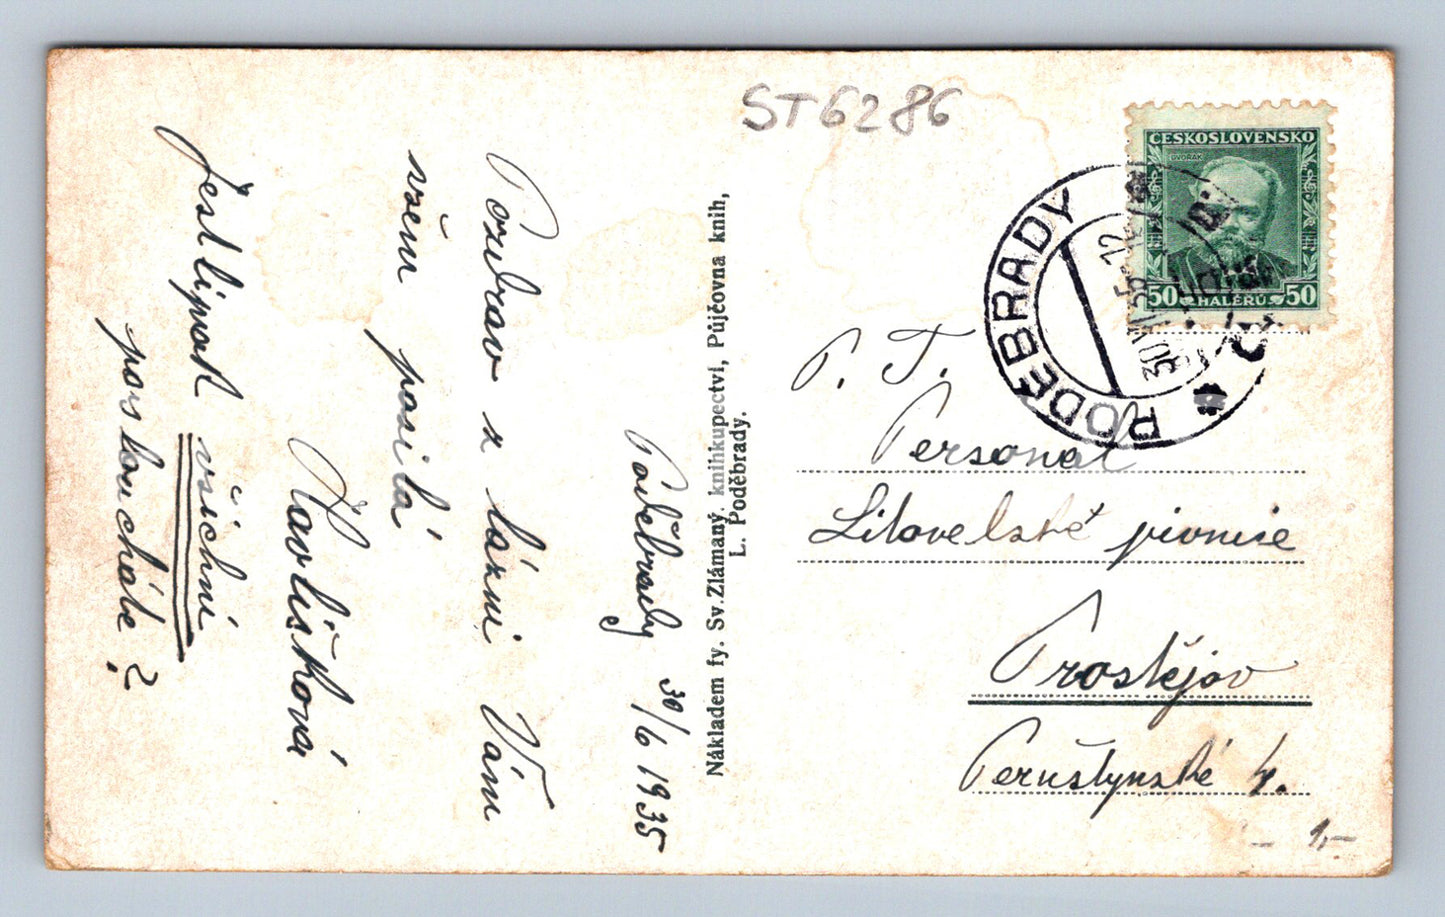 ST6286
ČESKOSLOVENSKO
DVOŘÁK
50 HALÉŘŮ 50
PODĚBRADY
30.VI.35-12
Poděbrady 30/6 1935
Pozdrav z lázní Vám
všem posílá
Havlíšková
Jestlipak všichni
posloucháte?
Nákladem fy. Sv. Zlámaný, knihkupectví, Půjčovna knih,
L. Poděbrady.
P. T.
Personal
Litovelské pivnice
Prostějov
Peruštynské 4.
1,-